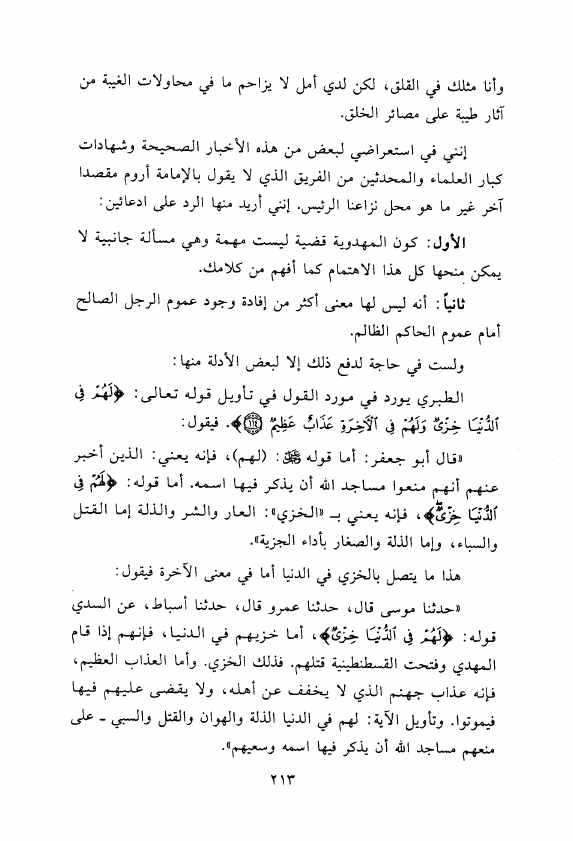 وأنا مثلك في القلق، لكن لدي أمل لا يزاحم ما في محاولات الغيبة من
آثار طيبة على مصائر الخلق.
إنني في استعراضي لبعض من هذه الأخبار الصحيحة وشهادات
كبار العلماء والمحدثين من الفريق الذي لا يقول بالإمامة أروم مقصدا
آخر غير ما هو محل نزاعنا الرئيس. إنني أريد منها الرد على ادعائين:
الأول: كون المهدوية قضية ليست مهمة وهي مسألة جانبية لا
يمكن منحها كل هذا الاهتمام كما أفهم من كلامك.
ثانياً: أنه ليس لها معنى أكثر من إفادة وجود عموم الرجل الصالح
أمام عموم الحاكم الظالم.
ولست في حاجة لدفع ذلك إلا لبعض الأدلة منها:
الطبري يورد في مورد القول في تأويل قوله تعالى: ﴿لَهُمْ فِى
ٱلدُّنْيَا خِزْىٌ وَلَهُمْ فِى ٱلْآخِرَةِ عَذَابٌ عَظِيمٌ ١١٤﴾. فيقول:
«قال أبو جعفر: أما قوله ﷻ: (لهم)، فإنه يعني: الذين أخبر
عنهم أنهم منعوا مساجد الله أن يذكر فيها اسمه. أما قوله: ﴿لَهُمْ فِى
ٱلدُّنْيَا خِزْىٌ﴾، فإنه يعني بـ «الخزي»: العار والشر والذلة إما القتل
والسباء، وإما الذلة والصغار بأداء الجزية».
هذا ما يتصل بالخزي في الدنيا أما في معنى الآخرة فيقول:
«حدثنا موسى قال، حدثنا عمرو قال، حدثنا أسباط، عن السدي
قوله: ﴿لَهُمْ فِى ٱلدُّنْيَا خِزْىٌ﴾، أما خزيهم في الدنيا، فإنهم إذا قام
المهدي وفتحت القسطنطينية قتلهم. فذلك الخزي. وأما العذاب العظيم،
فإنه عذاب جهنم الذي لا يخفف عن أهله، ولا يقضى عليهم فيها
فيموتوا. وتأويل الآية: لهم في الدنيا الذلة والهوان والقتل والسبي ـ على
منعهم مساجد الله أن يذكر فيها اسمه وسعيهم».
٢١٣